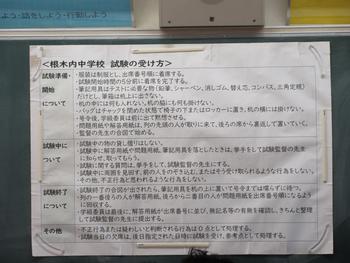 よう・話をしよう・行動しよう
<根木内中学校 試験の受け方>
試験準備・
開始
について
・服装は制服とし、出席番号順に着席する。
・試験開始時間の5分前に着席を完了する。
・筆記用具はテストに必要な物(鉛筆、シャーペン、消しゴム、替え芯、コンパス、三角定規)
だけとし、筆箱は机上に出さない。
・机の中には何も入れない。机の脇にも何も掛けない。
・バッグはチャックを閉めた状態で椅子の下またはロッカーに置き、机の横には掛けない。
・号令後、学級委員は前に出て黙想させる。
・問題用紙や解答用紙は、列の先頭の人が取りに来て、後ろの席から裏返して置いていく。
・監督の先生の合図で始める。
試験中に
ついて
・試験中の物の貸し借りはしない。
・試験中に解答用紙や問題用紙、筆記用具を落としたときは、挙手をして試験監督の先生
に知らせ、取ってもらう。
・試験に関する質問は、挙手をして、試験監督の先生にする。
・試験中に周囲を見回す、机の人をのぞき込む、またはそう受け取られるような行為をしない。
・その他、不正行為と思われるような行為をしない。
試験終了
について
・試験終了の合図が出されたら、筆記用具を机の上に置いて号令までは喋らずに待つ。
・列の一番後ろの人が解答用紙、後ろから二番目の人が問題用紙を出席番号順になるよう
に回収する。
・学級委員は最後に、解答用紙が出席番号に並び、無記名等の有無を確認し、きちんと整理
して試験監督の先生に提出する。
その他
・不正行為または疑わしいと判断される行為は0点として処理する。
・試験当日の欠席は、後日指定された日時に試験を受け、参考点として処理する。